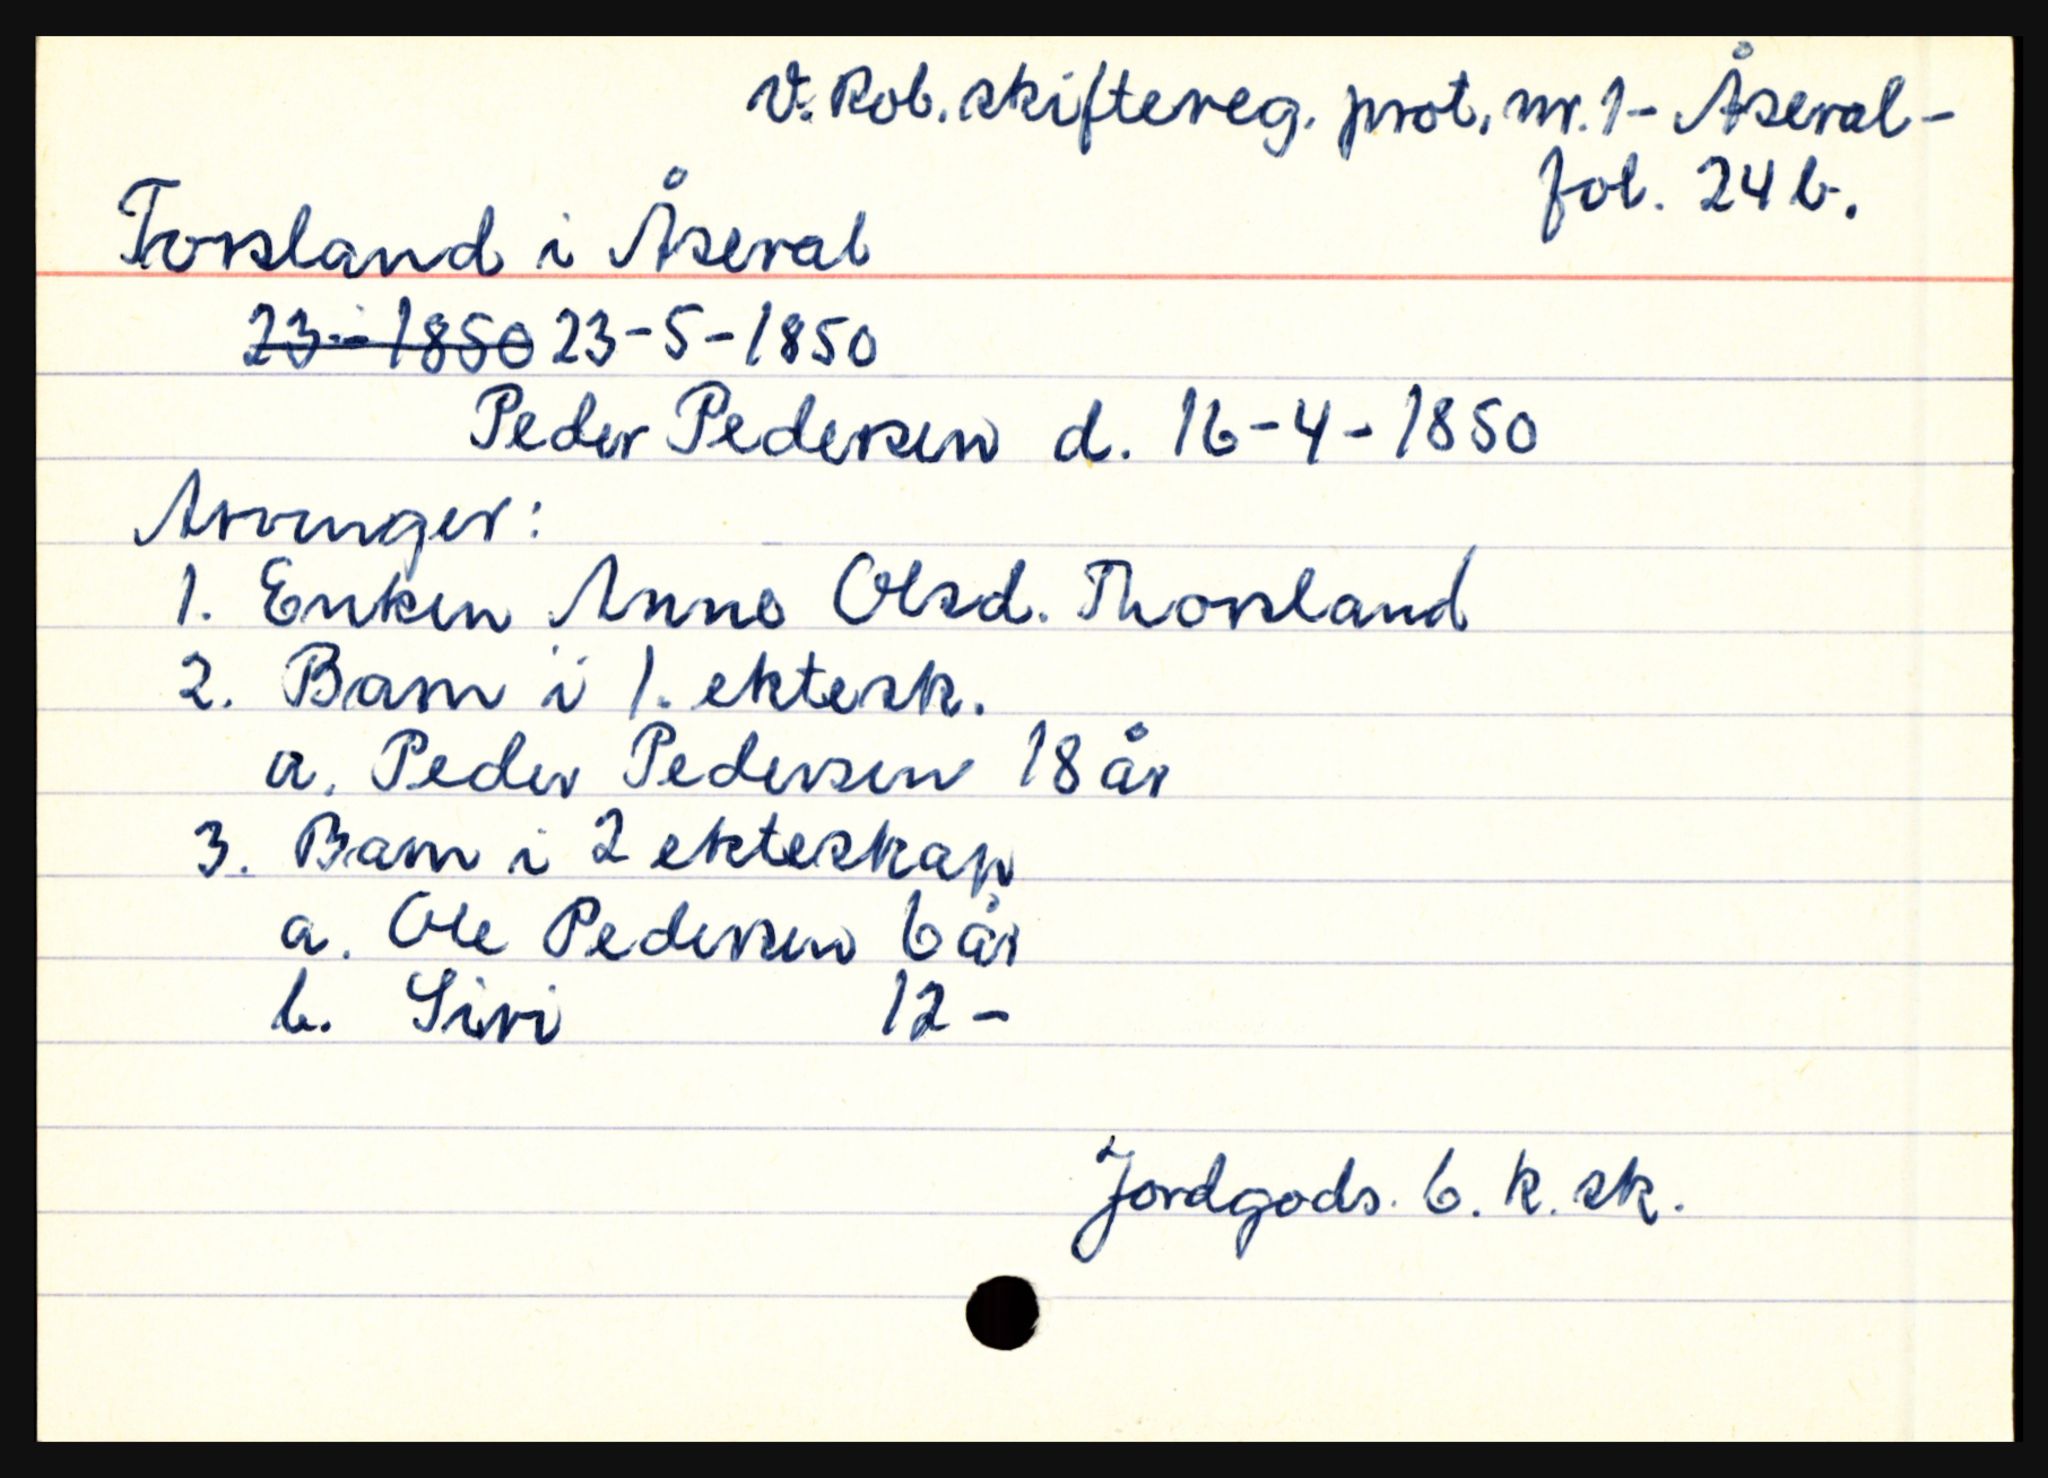 V. Rob. skiftereg. prot. nr. 1 - Åseral -
fol. 24 b.
Torsland i Åseral
23 - - 1850 23-5-1850
Peder Pedersen d. 16-4-1850
Arvinger:
1. Enken Anne Olsd. Thorsland
2. Barn i 1. ektesk.
a. Peder Pedersen 18 år
3. Barn i 2 ekteskap
a. Ole Pedersen 6 år
b. Siri 12 -
Jordgods. 6. k. sk.